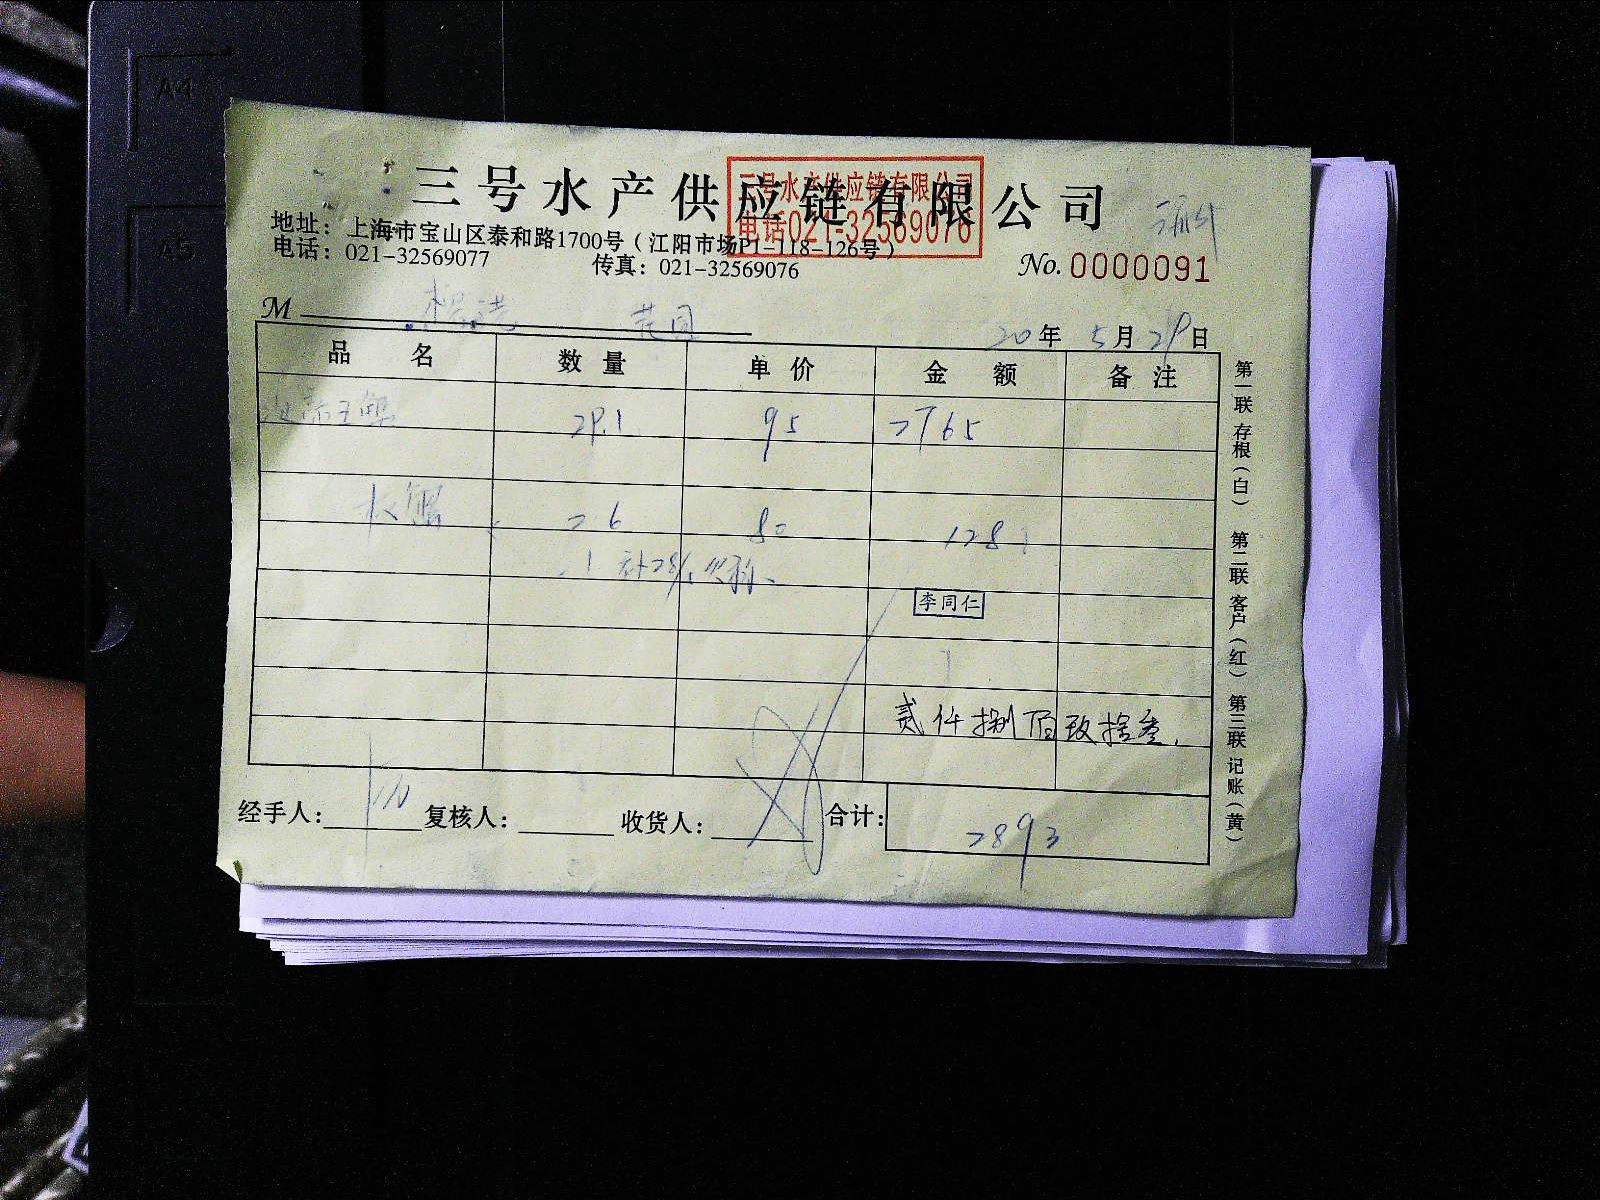 A4
A5
三号水产供应链有限公司
三号水产供应链有限公司
电话021-32569076
地址：上海市宝山区泰和路1700号（江阳市场P1-118-126号）
电话：021-32569077 传真：021-32569076
No. 0000091
M
20年 5月 29日
品名 数量 单价 金额 备注
王蟹 29.1 95 2765
板蟹 26 80 128
补 欠称
李同仁
贰仟捌佰玖拾叁
经手人： 复核人： 收货人： 合计： 2893
第一联 存根（白） 第二联 客户（红） 第三联 记账（黄）